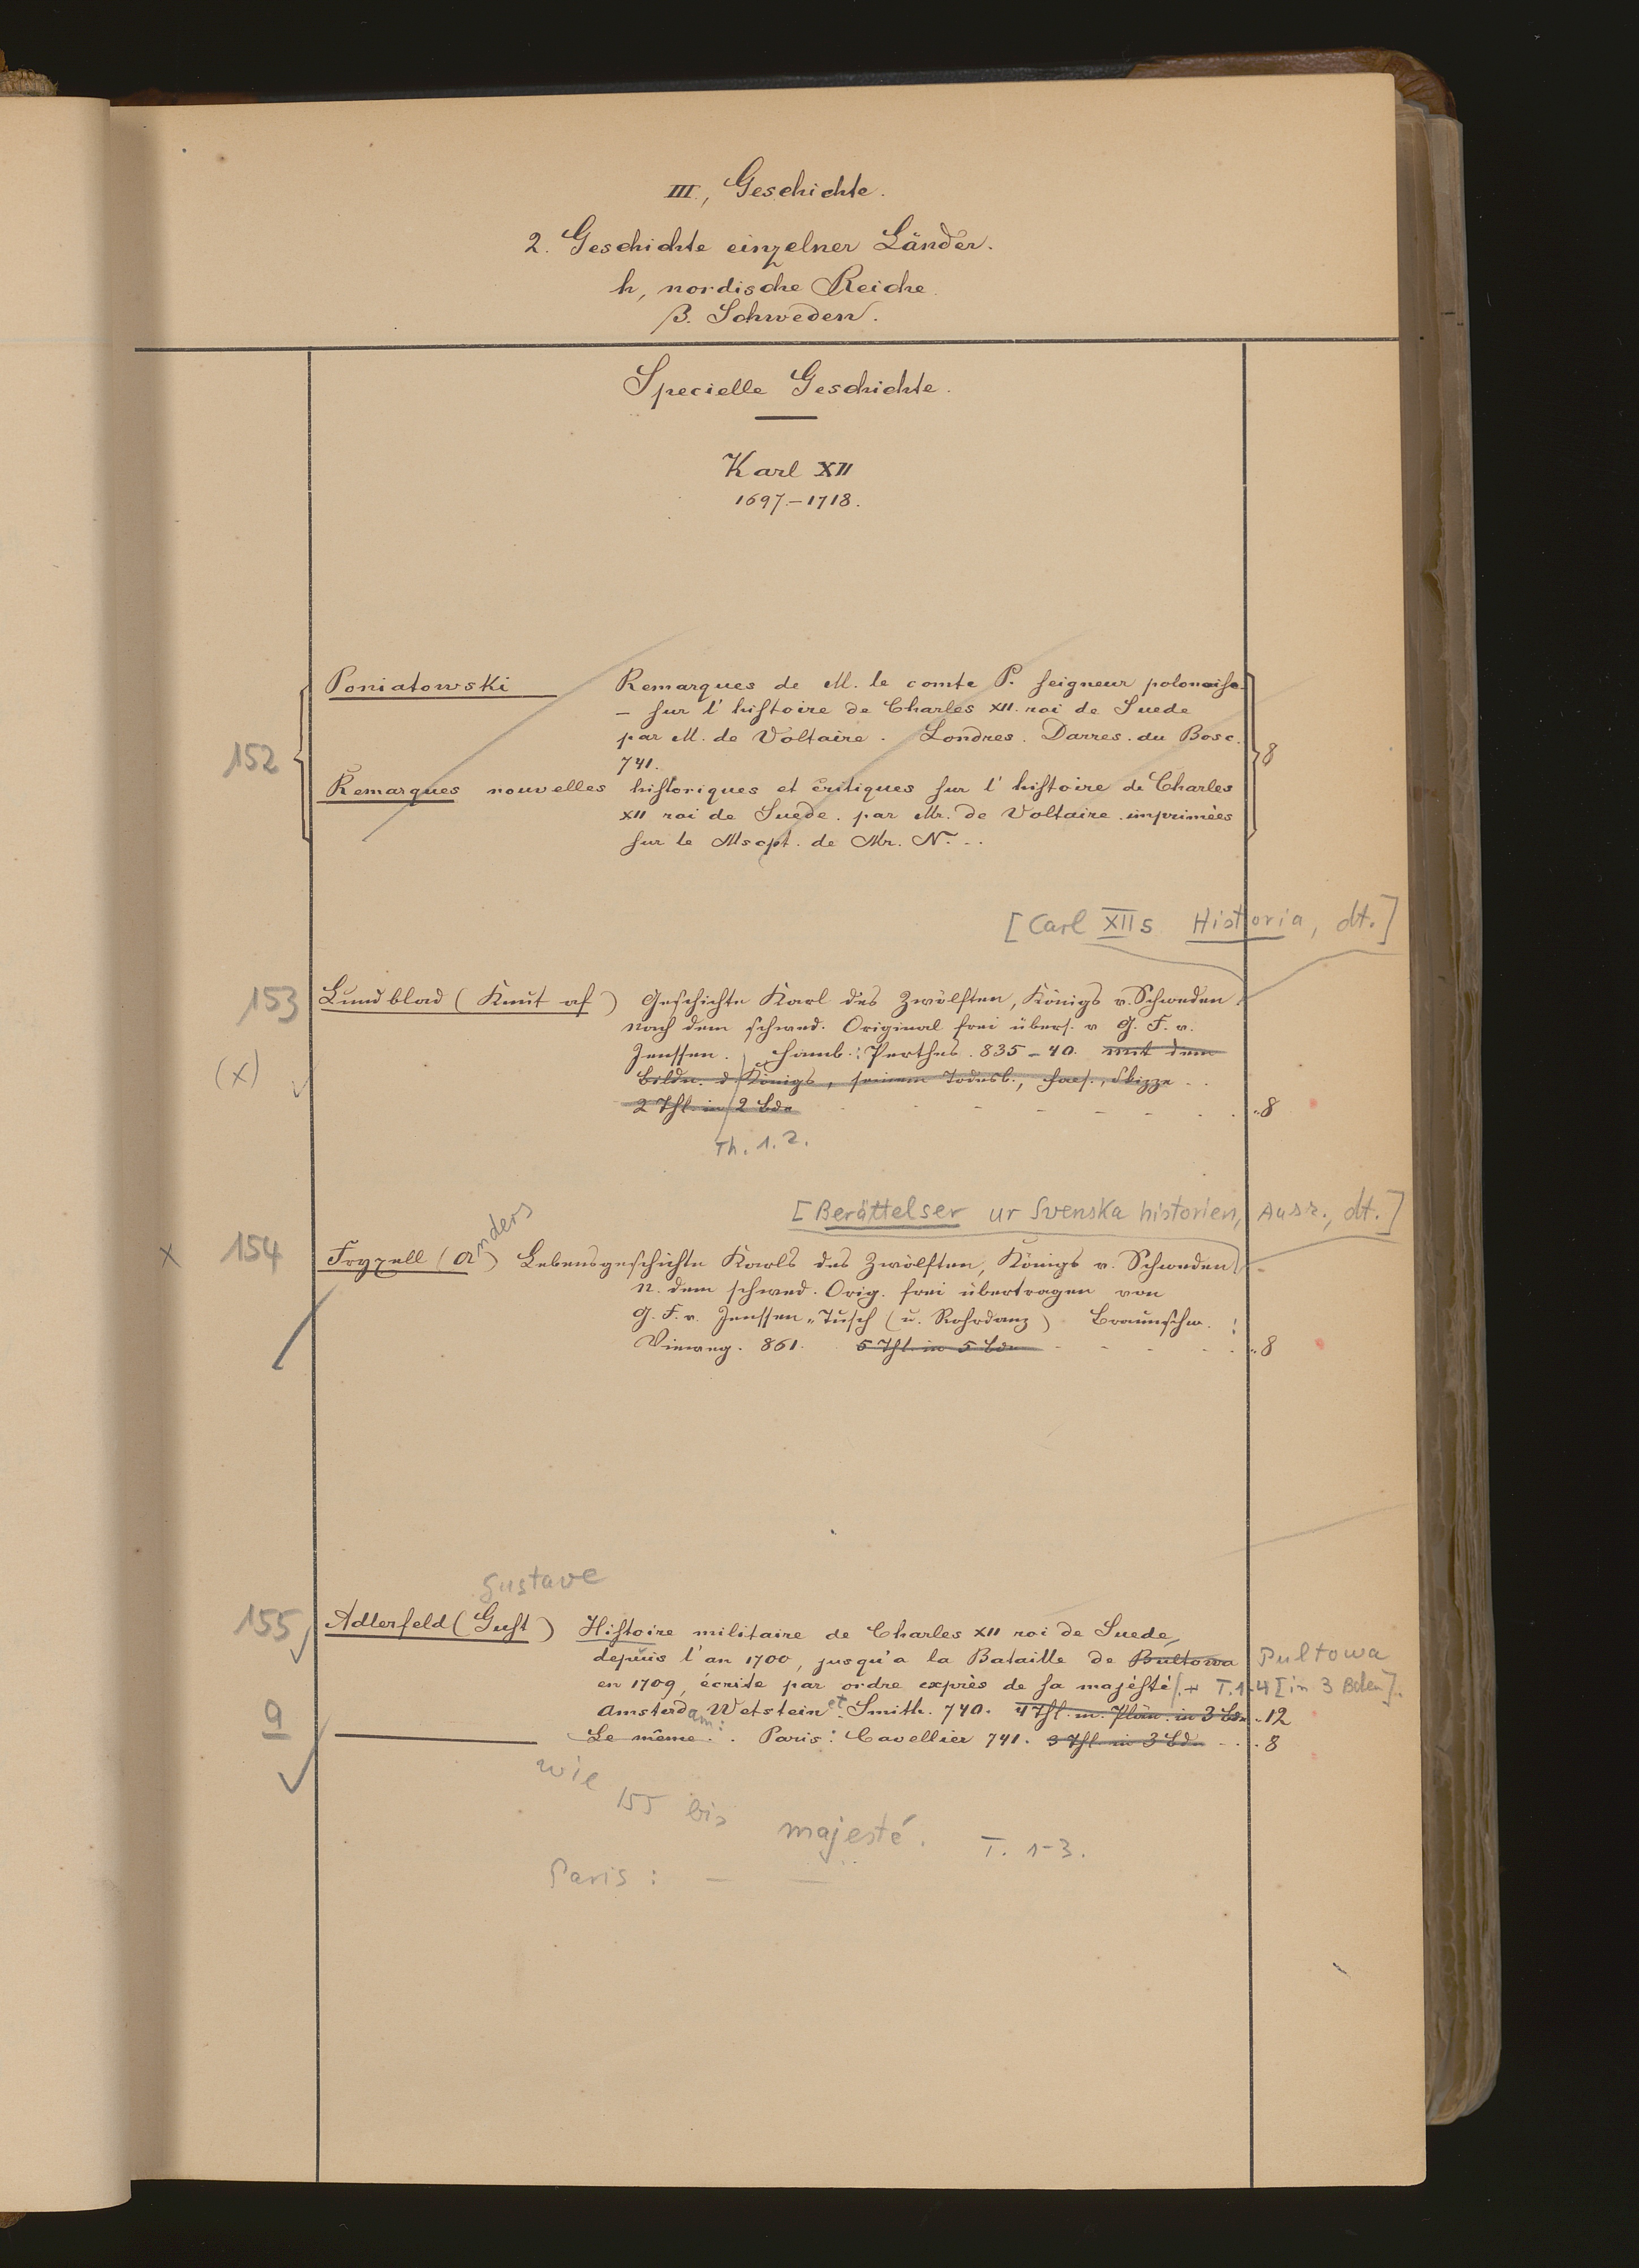 III., Geschichte.
2. Geschichte einzelner Länder.
h, nordische Reiche.
β. Schweden.
Specielle Geschichte.
Karl XII
1697.–1718.
152
Poniatowski Remarques de M. le comte P. seigneur polonaise.
– sur l'histoire de Charles XII. roi de Suede
par M. de Voltaire. Londres. Darres. du Bosc.
741.
8
Remarques nouvelles historiques et critiques sur l'histoire de Charles
XII roi de Suede. par Mr. de Voltaire. imprimèes
sur le Mscpt. de Mr. N. ..
[Carl XIIs Historia, dt.]
153 Lundblad (Knut af) Geschichte Karl des Zwölften, Königs v. Schweden.
nach dem schwed. Original frei übers. v G. F. v.
(x) Jenssen. Hamb.: Perthes. 835–40. mit dem
Bildn. d Königs, seinem Todesb., Facs., Skizze ..
2 Thl. in 2 Bdn - - - - - - . . 8
Th. 1. 2.
[Berättelser ur Svenska historien, Ausz., dt.]
x 154 Fryxell (Anders) Lebensgeschichte Karls des Zwölften, Königs v. Schweden
n. dem schwed. Orig. frei übertragen von
G. F. v. Jenssen-Tusch (u. Rohrdanz) Braunschw. :
Vieweg. 861. 5 Thl. in 5 Bdn - - - . . 8
Gustave
155 Adlerfeld (Gust) Histoire militaire de Charles XII roi de Suede,
depuis l'an 1700, jusqu'a la Bataille de Bultowa Pultowa
en 1709, écrite par ordre exprès de sa majésté. + T. 1-4 [in 3 Bden].
Amsterdam: Wetstein et Smith. 740. 4 Thl. m. Plän. in 3 Bdn . 12
a Le même. . Paris: Cavellier 741. 3 Thl. in 3 Bdn - . . 8
wie 155 bis majesté. T. 1-3.
Paris: — —